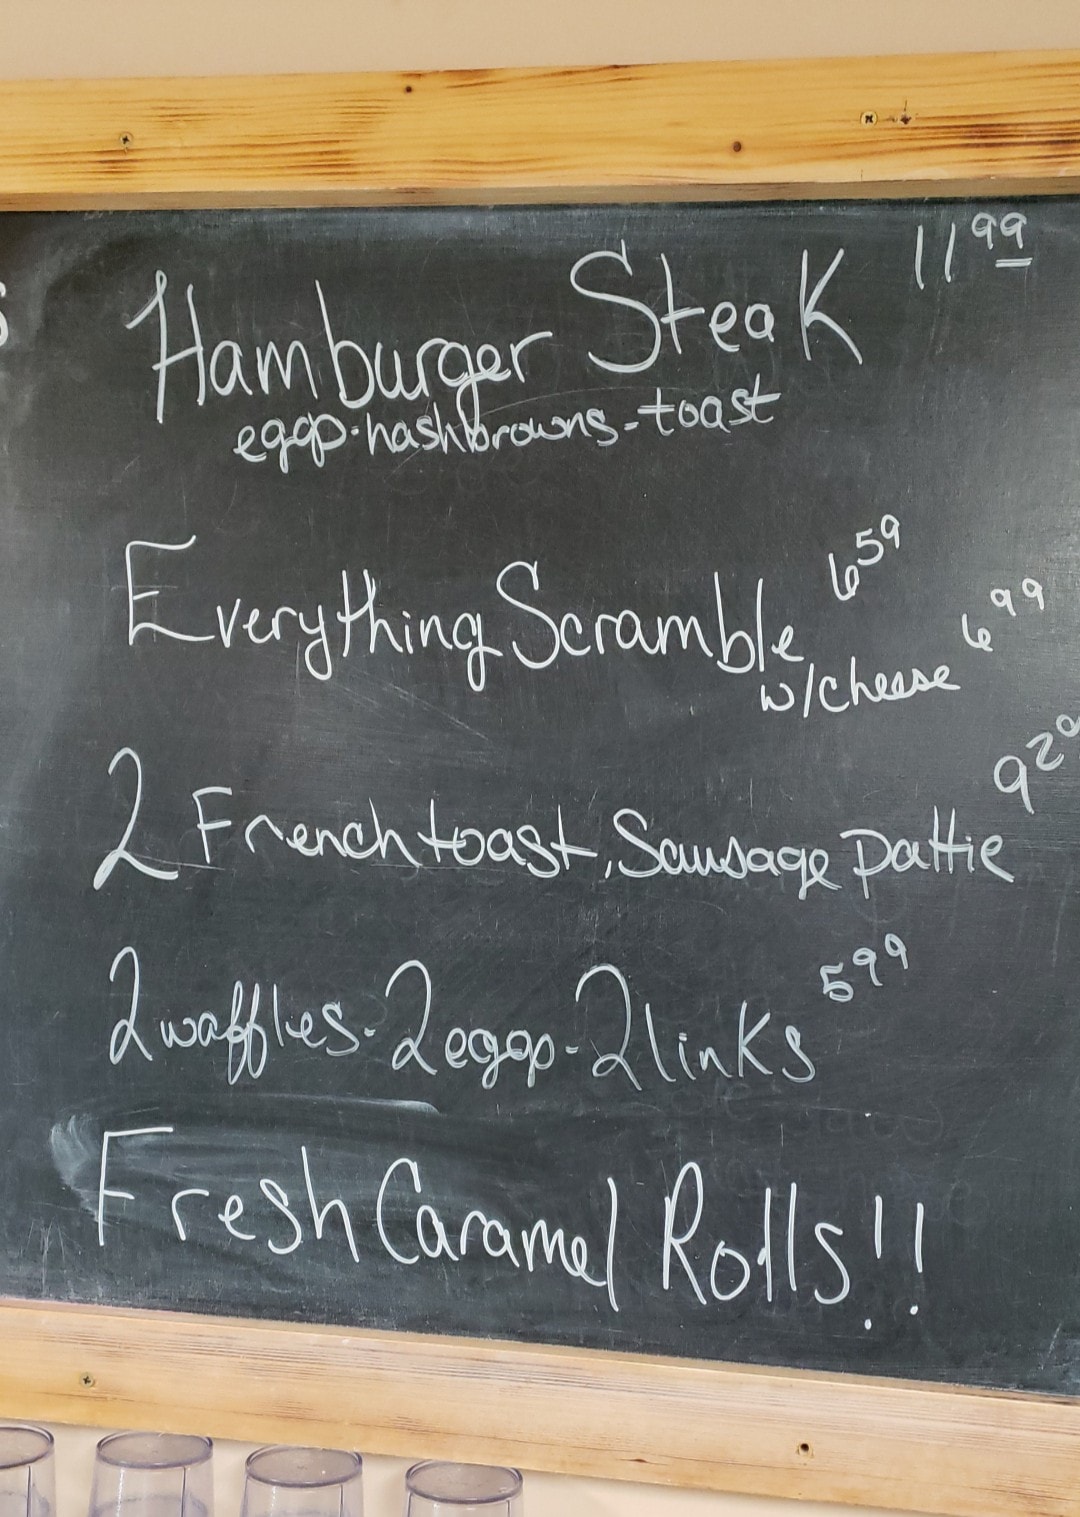 Hamburger Steak 11 99
eggs-hashbrowns-toast
Everything Scramble 6 59
w/cheese 6 99
2 French toast, Sausage pattie 9 2
2 waffles-2 eggs-2 links 5 99
Fresh Caramel Rolls!!